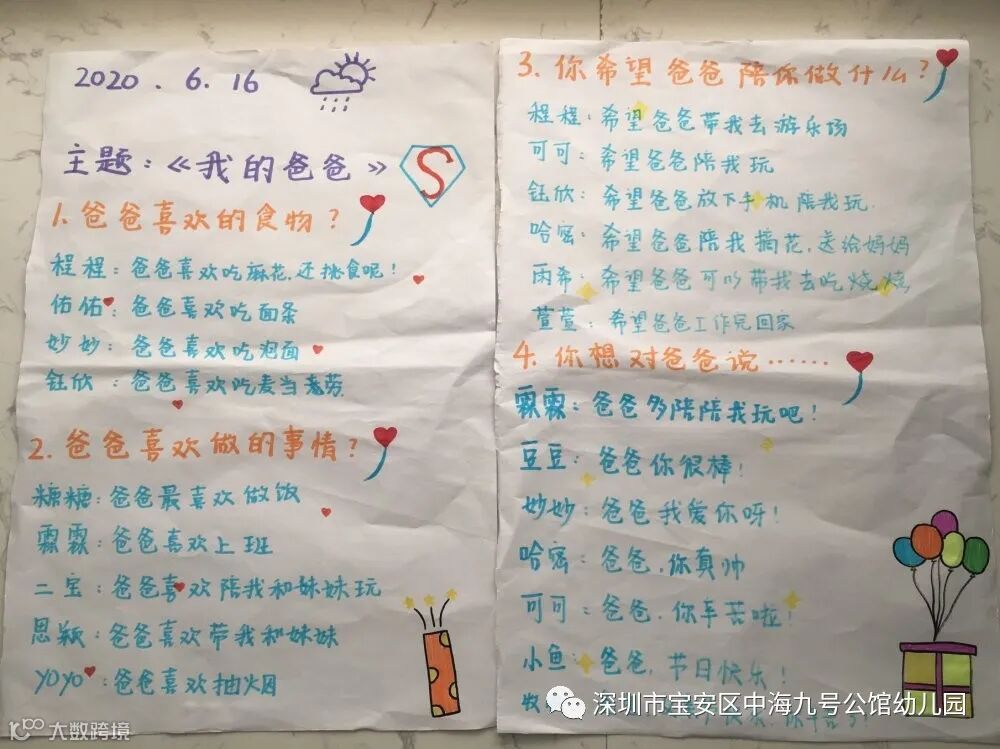 2020.6.16
主题:《我的爸爸》
S
1.爸爸喜欢的食物?
程程:爸爸喜欢吃麻花,还挑食呢!
佑佑:爸爸喜欢吃面条
妙妙:爸爸喜欢吃泡面
钰欣:爸爸喜欢吃麦当劳
2.爸爸喜欢做的事情?
糖糖:爸爸最喜欢做饭
霖霖:爸爸喜欢上班
二宝:爸爸喜欢陪我和妹妹玩
思颖:爸爸喜欢带我和妹妹
yoyo:爸爸喜欢抽烟
3.你希望爸爸陪你做什么?
程程:希望爸爸带我去游乐场
可可:希望爸爸陪我玩
钰欣:希望爸爸放下手机陪我玩.
哈密:希望爸爸陪我摘花,送给妈妈
雨希:希望爸爸可以带我去吃烧烤
萱萱:希望爸爸工作完回家
4.你想对爸爸说……
霖霖:爸爸多陪陪我玩吧!
豆豆:爸爸你很棒!
妙妙:爸爸我爱你呀!
哈密:爸爸,你真帅
可可:爸爸,你辛苦啦!
小鱼:爸爸,节日快乐!
深圳市宝安区中海九号公馆幼儿园
大数跨境